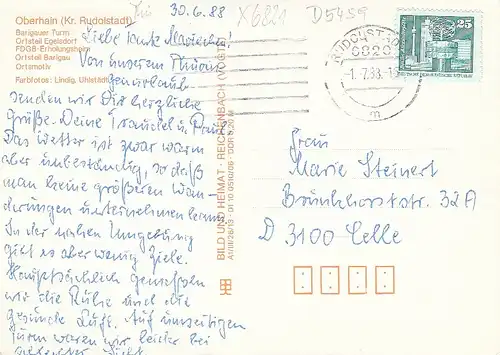 30.6.88
X6821
D5459
Oberhain (Kr. Rudolstadt)
Barigauer Turm
Ortsteil Egelsdorf
FDGB-Erholungsheim
Ortsteil Barigau
Ortsmotiv
Farbfotos: Lindig, Uhlstädt
Liebe Tante Mariechen!
Von unserem
senden wir Dir herzliche
Grüße. Deine Traudel u.
Das Wetter ist zwar warm
aber unbeständig, so daß
man keine größeren Wan-
derungen unternehmen kann.
In der nahen Umgebung
gibt es aber wenig Ziele.
Hauptsächlich genießen
wir die Ruhe und die
gesunde Luft. Auf
Turm waren wir leider bei
Sicht
BILD UND HEIMAT · REICHENBACH (VOGTL)
A1/III/26/13 · 01 10 0510/06 · DDR 0,20 M
RUDOLSTADT
6820
-1.7.88
m
25
DDR
Frau
Marie Steinert
Bruhkhorststr. 32A
D 3100 Celle